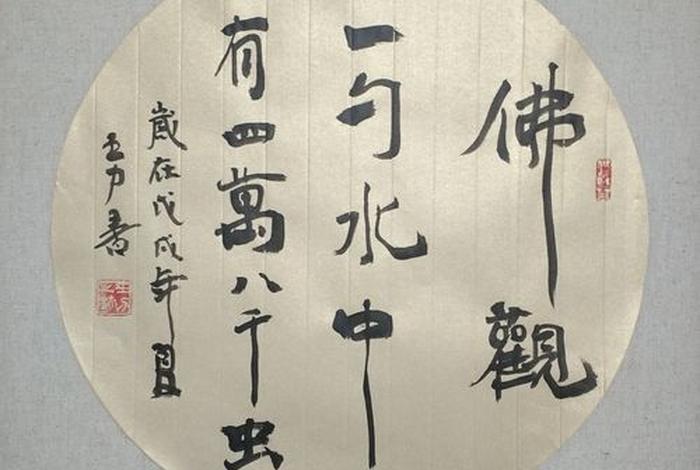 佛觀
一勺水中
有四萬八千虫
歲在戊戌年夏
王力書